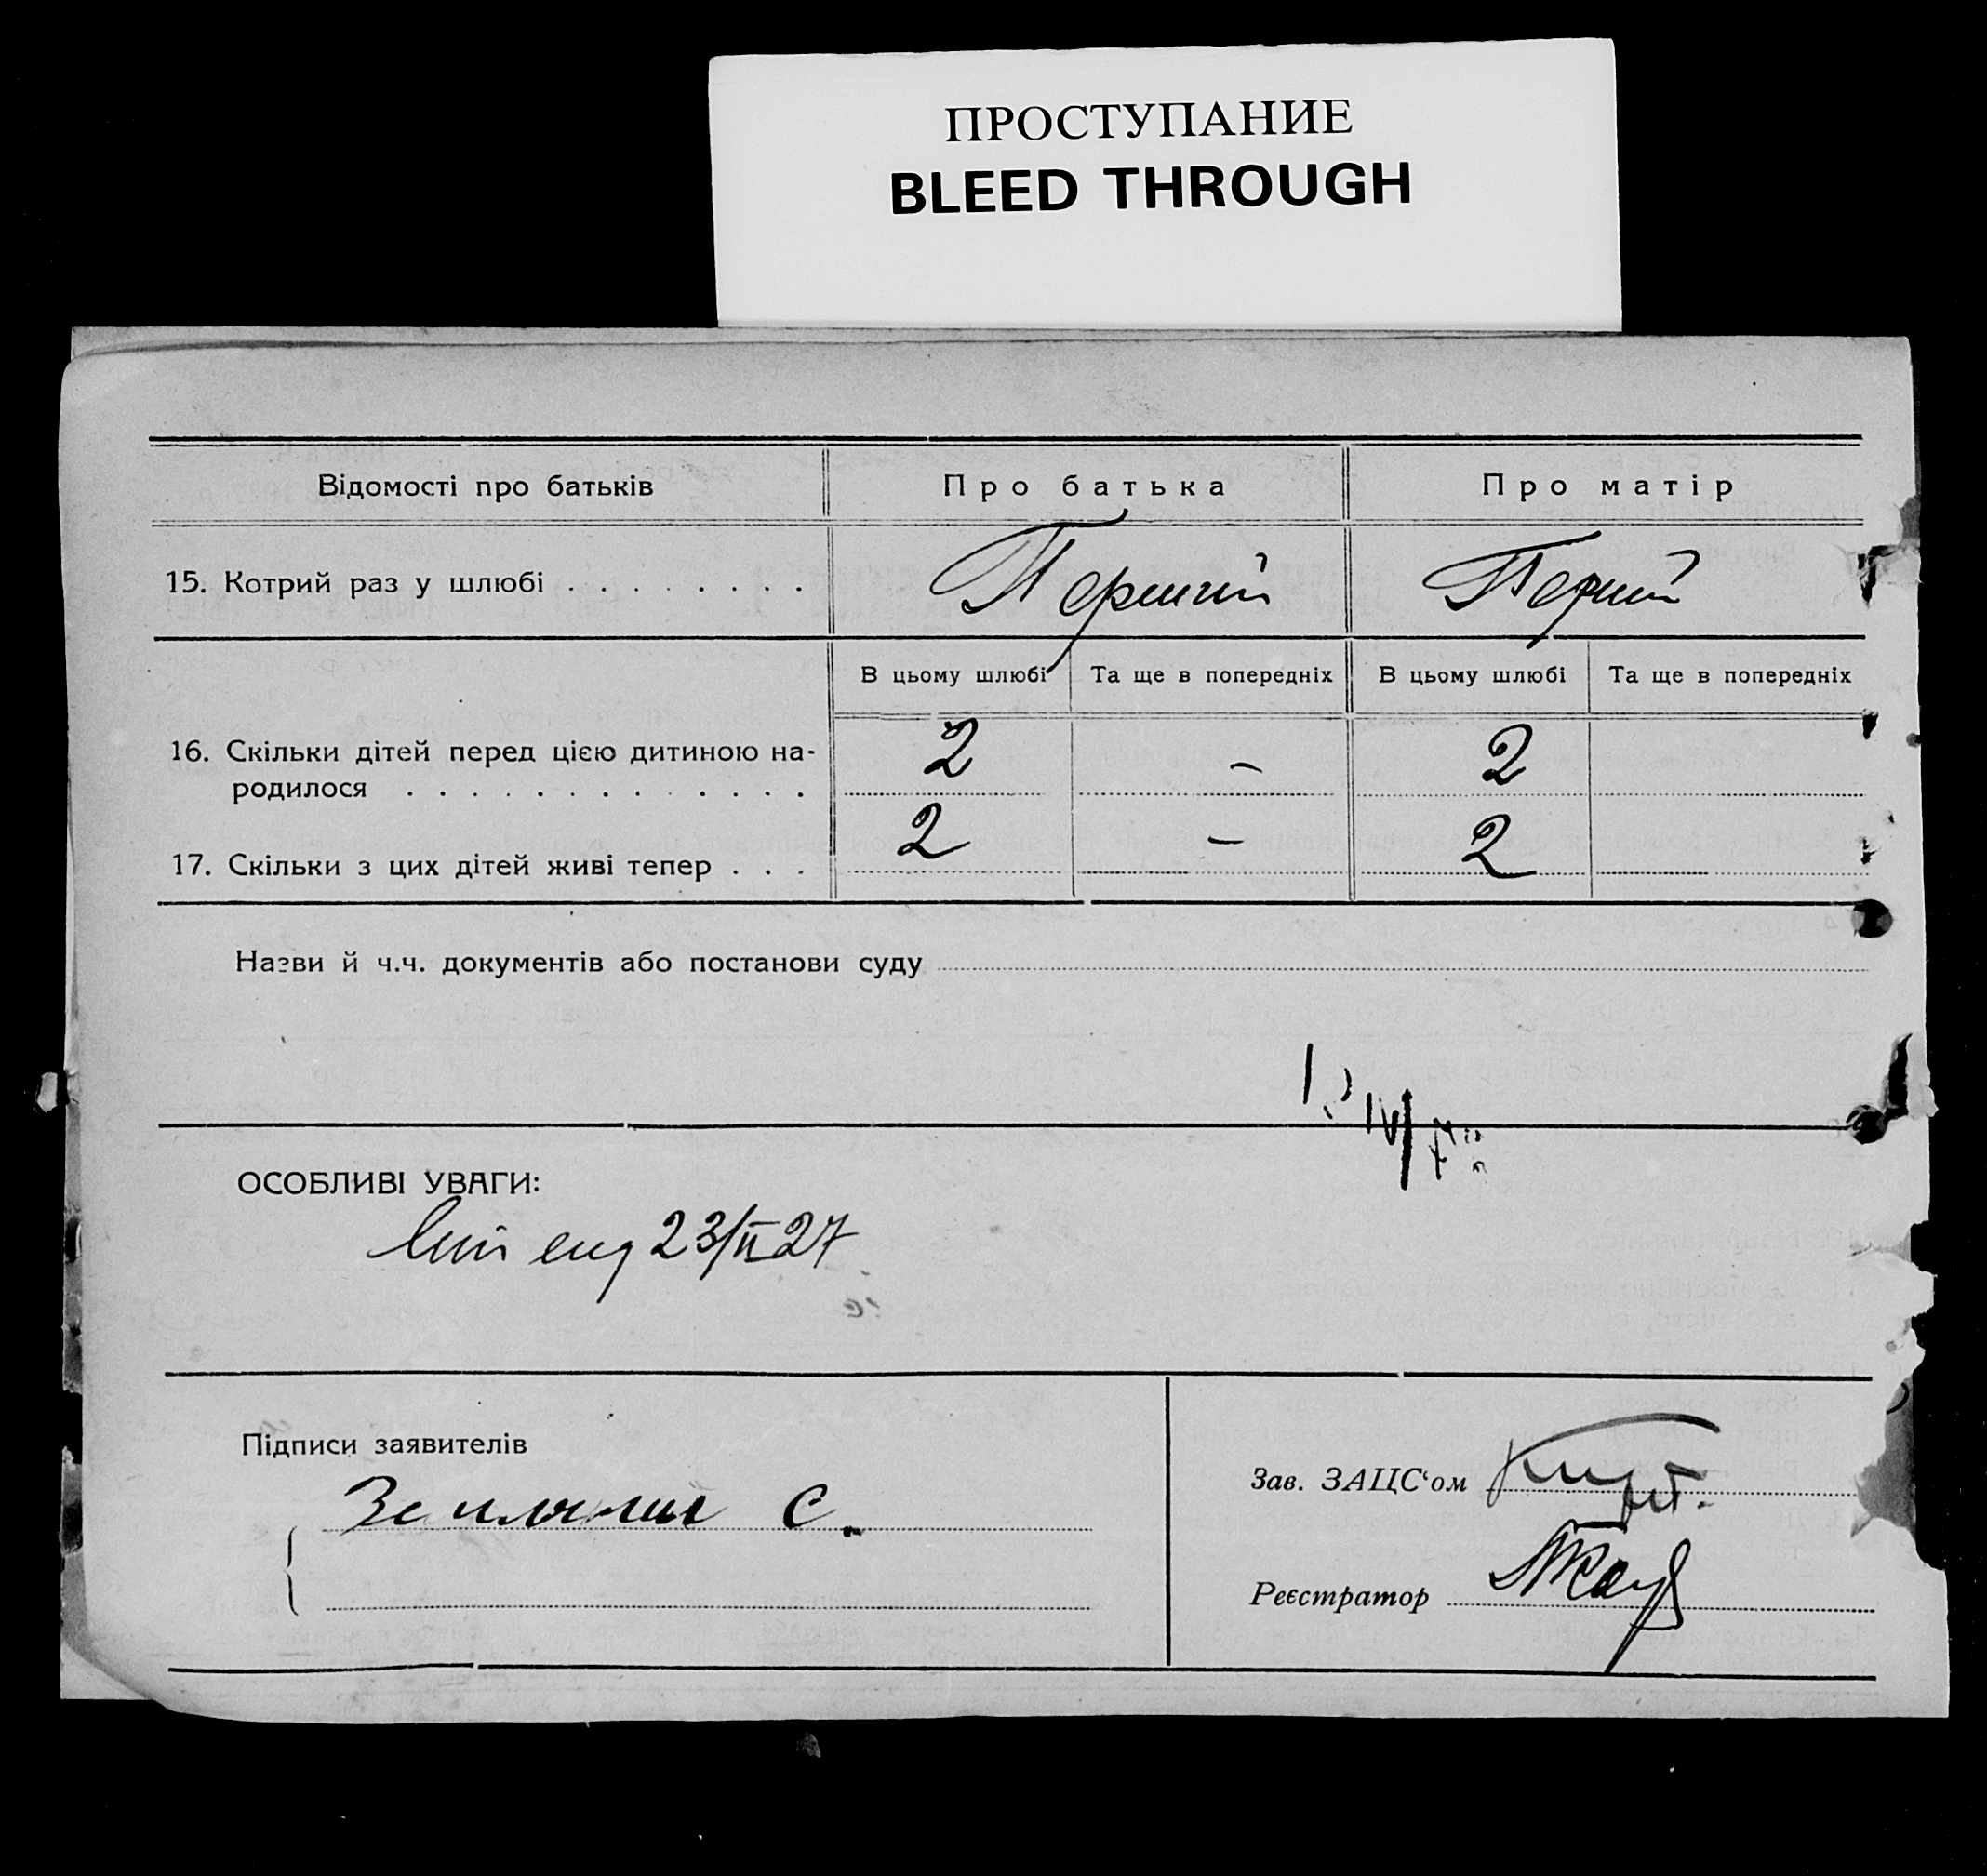 ПРОСТУПАНИЕ
BLEED THROUGH
Відомості про батьків Про батька Про матір
15. Котрий раз у шлюбі . . . . . . . . Перший Перший
В цьому шлюбі Та ще в попередніх В цьому шлюбі Та ще в попередніх
16. Скільки дітей перед цією дитиною на-
родилося . . . . . . . . . . . . . 2 – 2
17. Скільки з цих дітей живі тепер . . . 2 – 2
Назви й ч.ч. документів або постанови суду
ОСОБЛИВІ УВАГИ:
23/II 27
Підписи заявителів
С.
Зав. ЗАЦС‘ом
Реєстратор